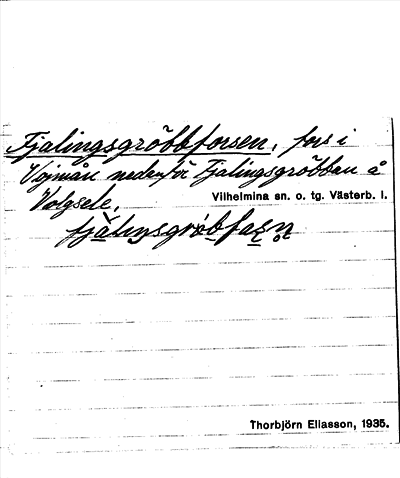 Fjalingsgröbbforsen, fors i
Vojmån nedanför Fjalingsgröbban å
Volgsele. Vilhelmina sn. o. tg. Västerb. l.
Thorbjörn Eliasson, 1935.